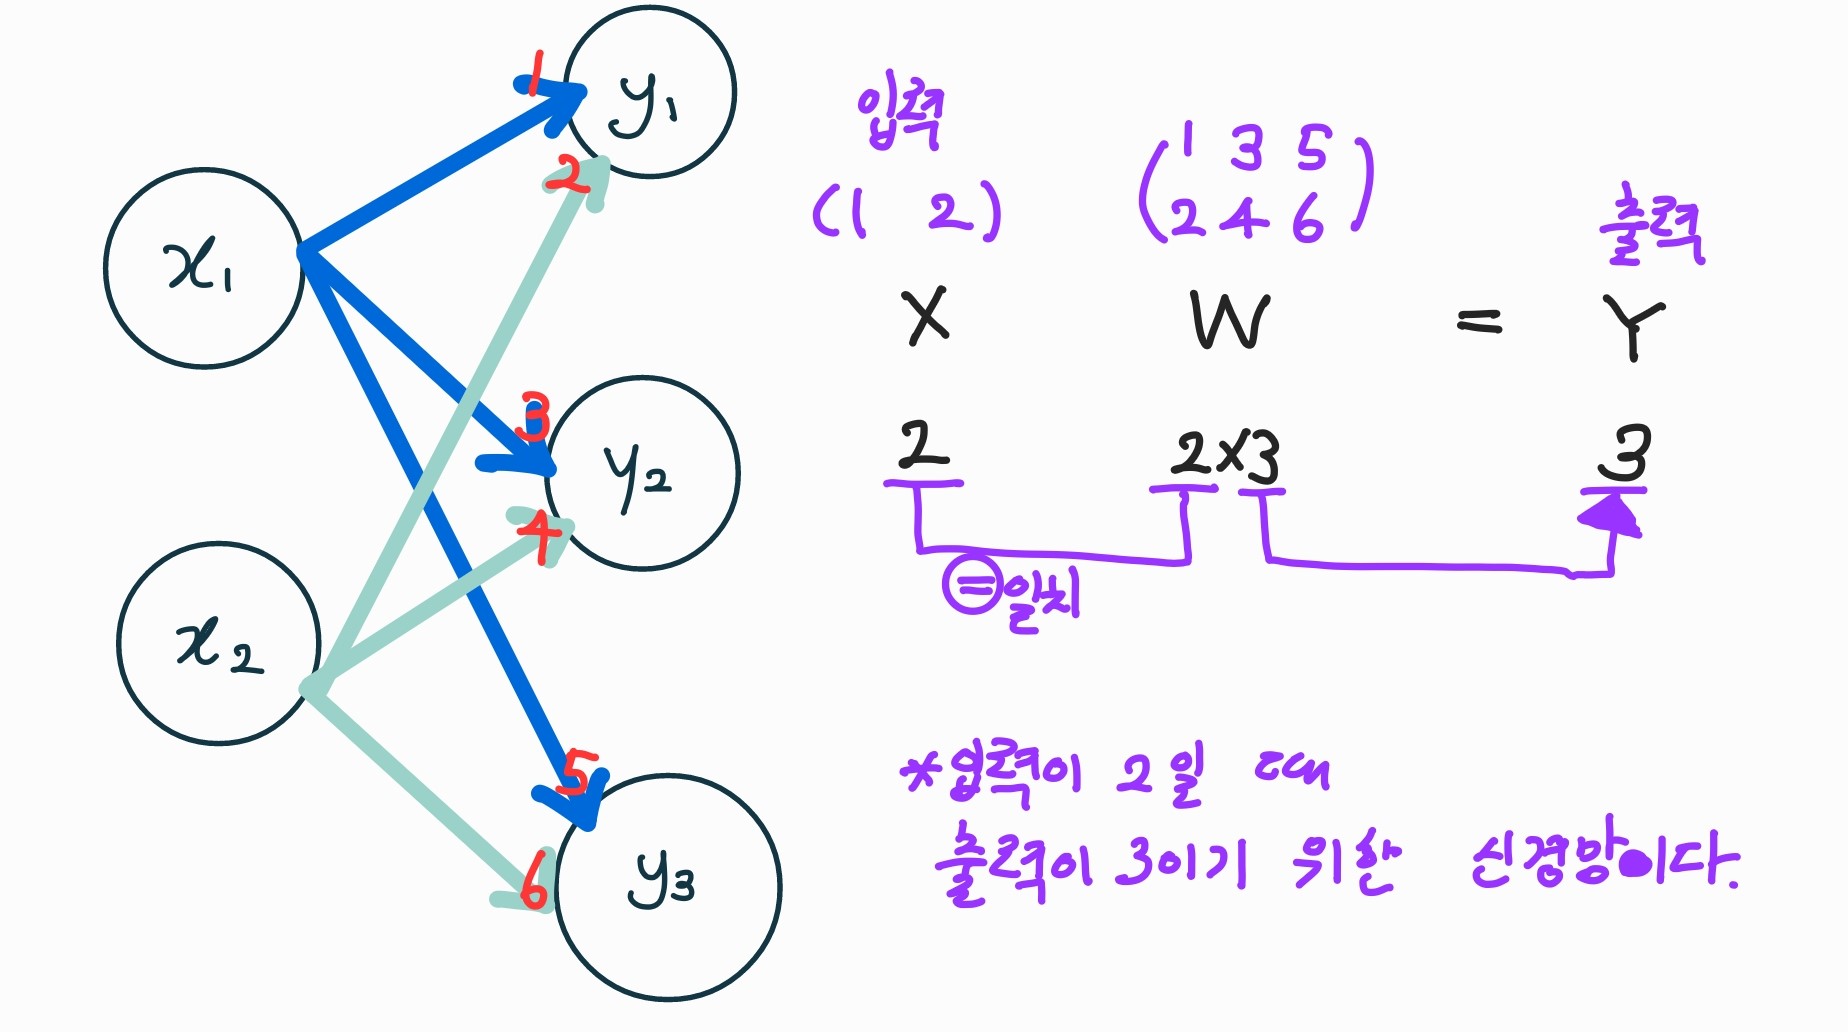 x₁
x₂
y₁
y₂
y₃
1
2
3
4
5
6
입력
(1 2)
(1 3 5
2 4 6)
출력
X W = Y
2 2×3 3
= 일치
*입력이 2일 때
출력이 3이기 위한 신경망이다.